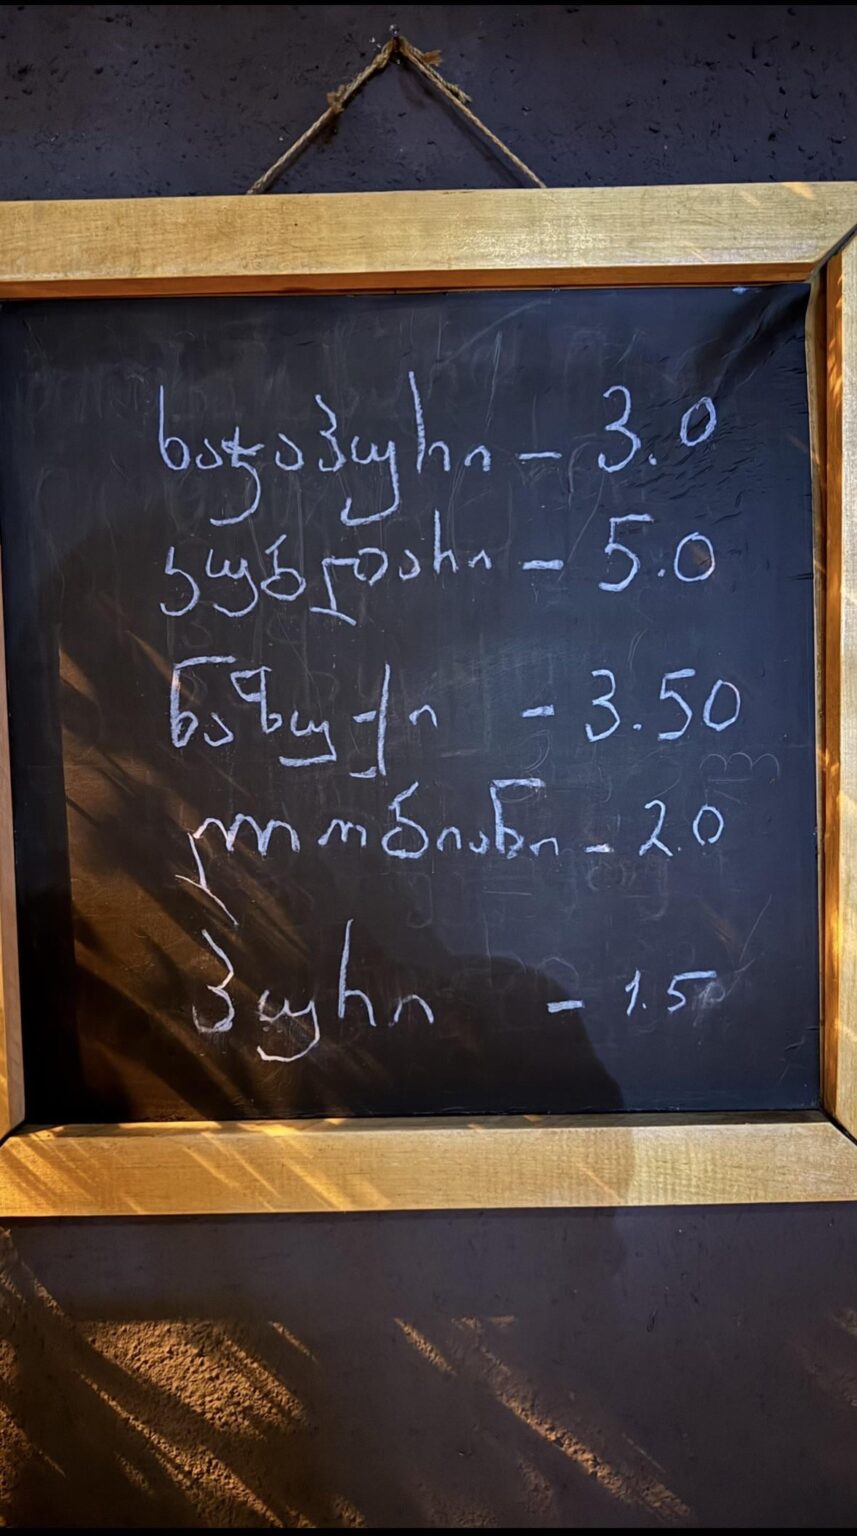 ხაჭაპური - 3.0
კუბდარი - 5.0
ნაზუქი - 3.50
ლობიანი - 2.0
პური - 1.50